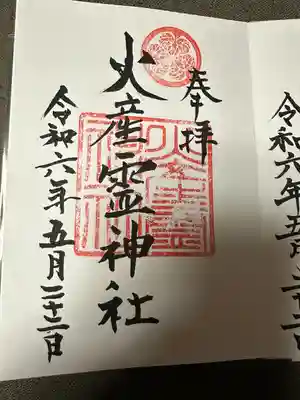 奉拝
火産霊神社
令和六年五月二十二日
令和六年五月二十二